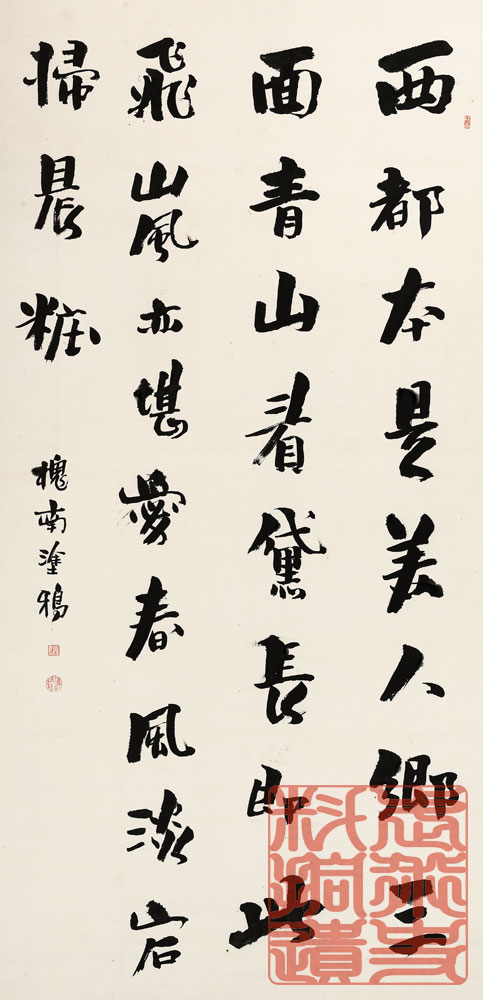 西都本是美人鄉三
面青山看黛長即此
飛嵐亦堪愛春風淡宕
掃晨粧
槐南塗鴉